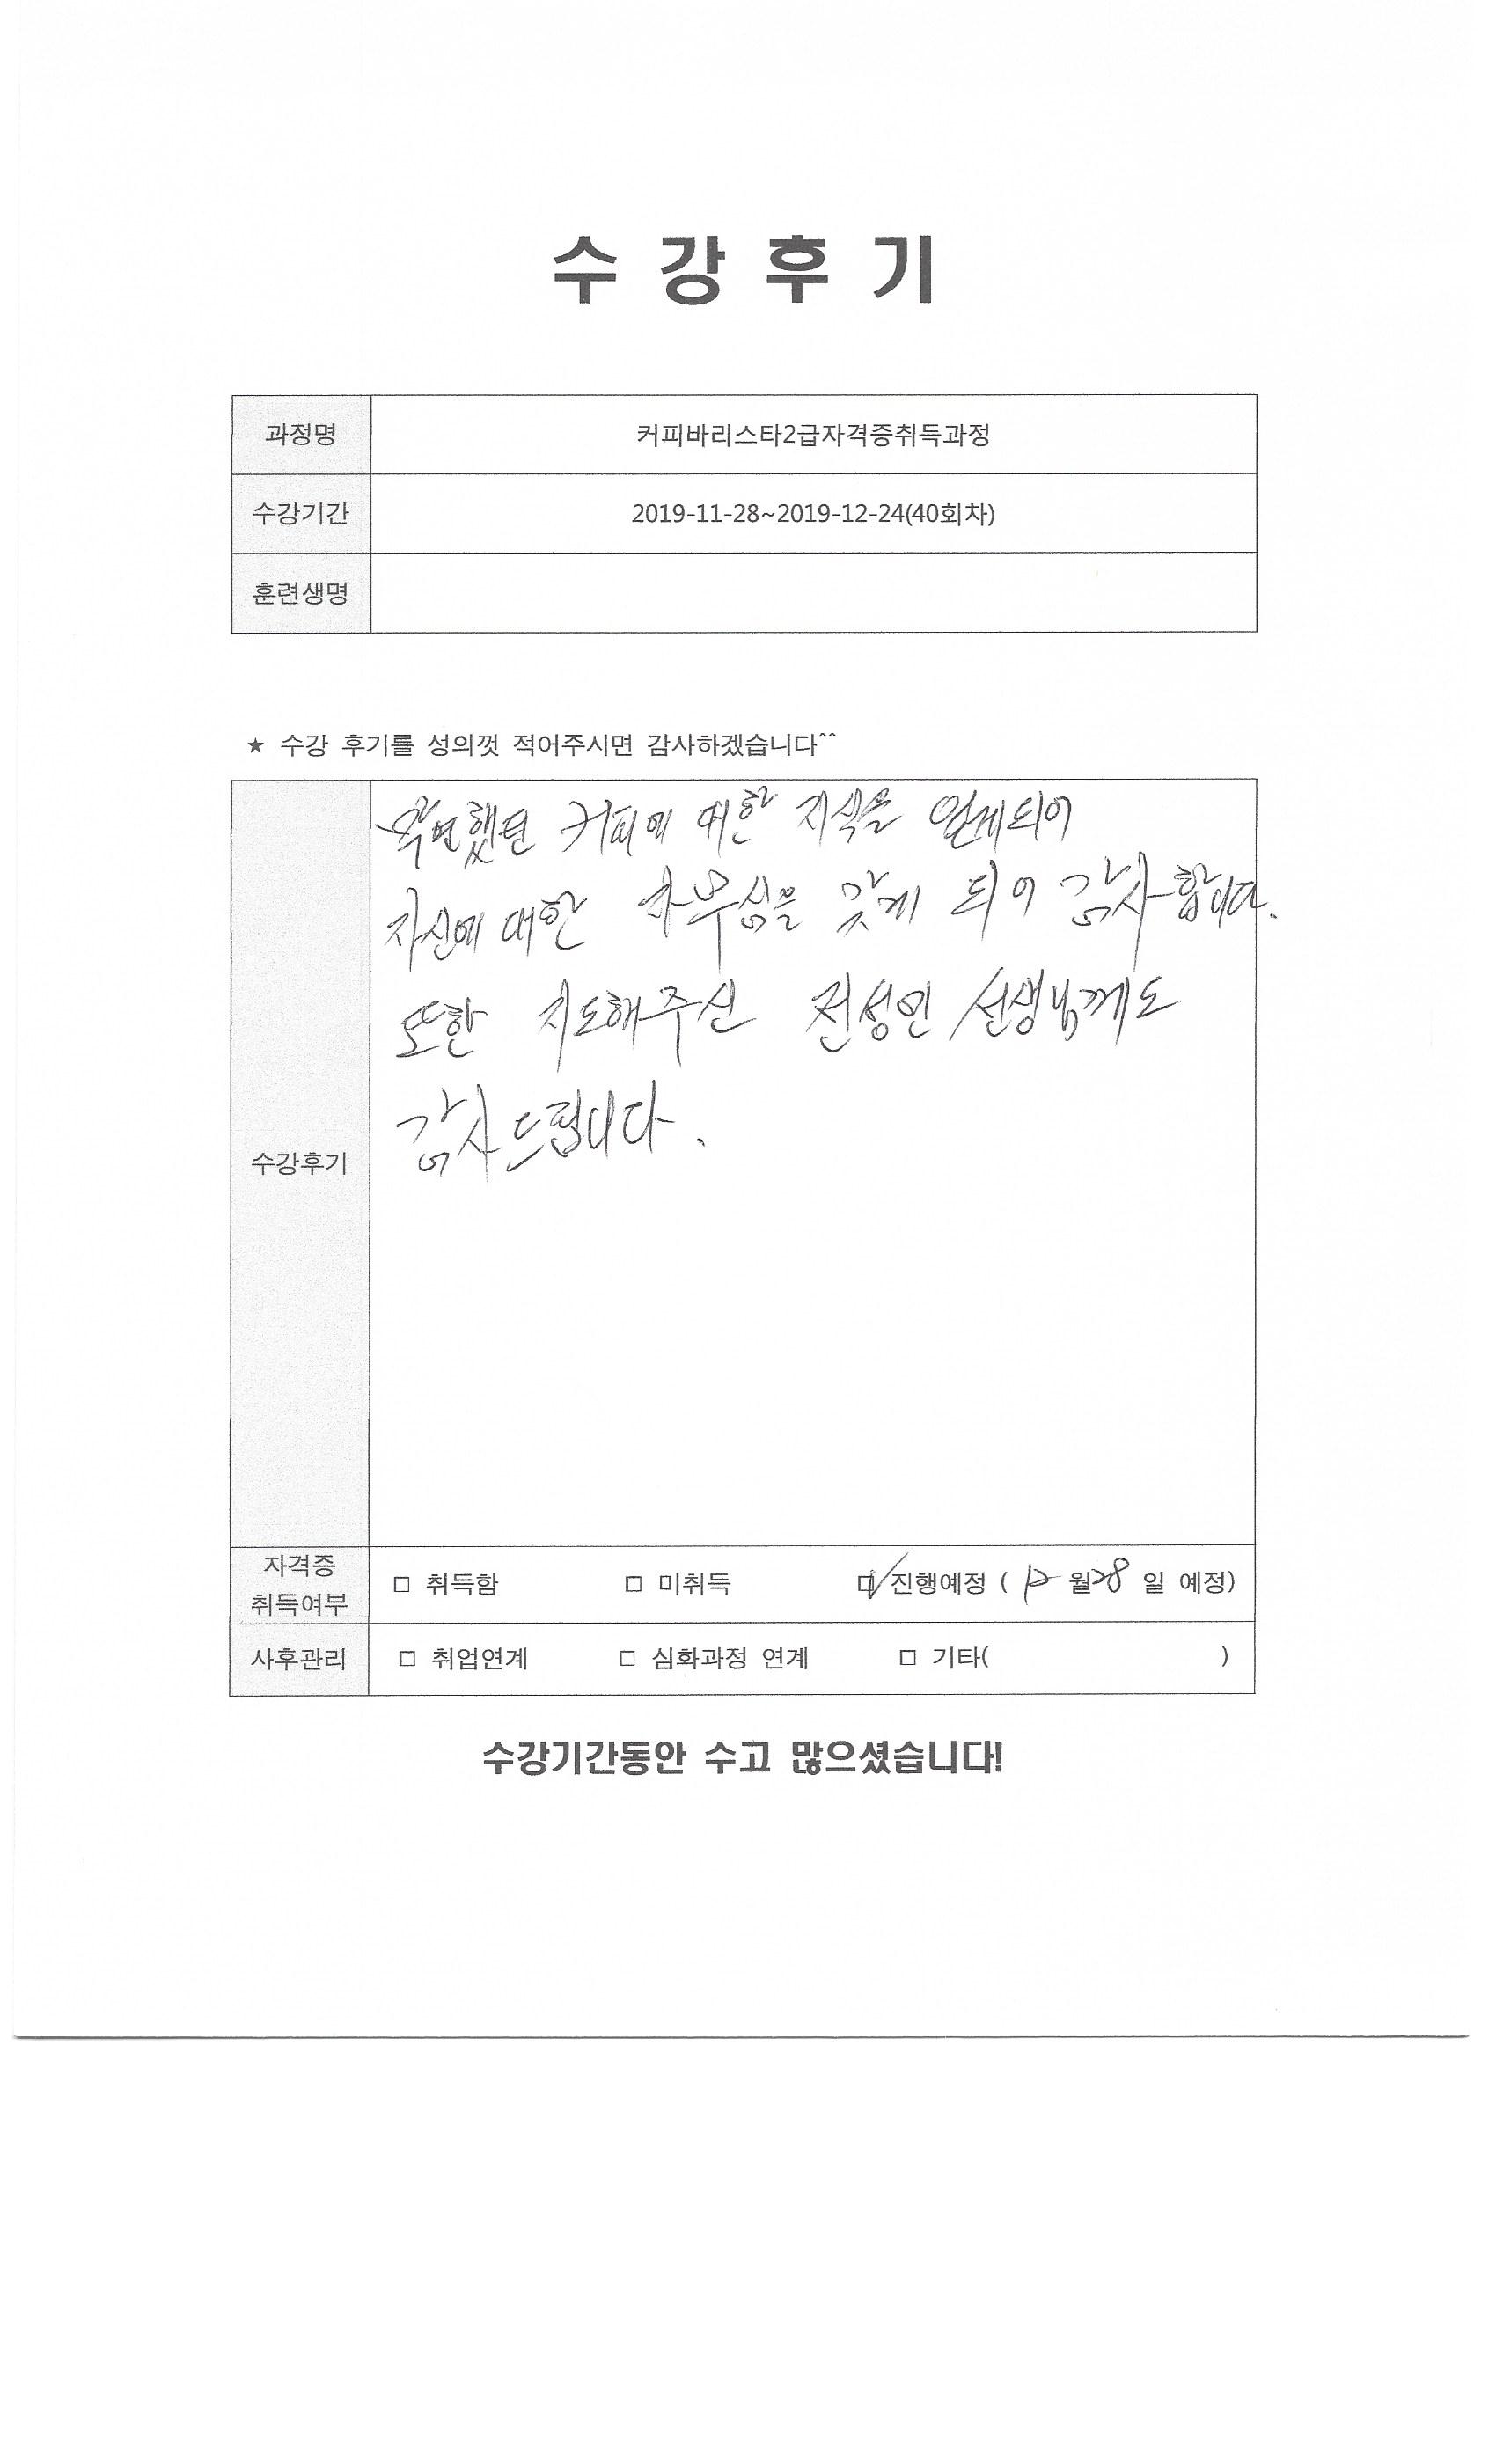 수 강 후 기
과정명 커피바리스타2급자격증취득과정
수강기간 2019-11-28~2019-12-24(40회차)
훈련생명
★ 수강 후기를 성의껏 적어주시면 감사하겠습니다^^
막연했던 커피에 대한 지식을 얻게되어
자신에 대한 자부심을 갖게 되어 감사합니다.
또한 지도해주신 전성인 선생님께도
감사드립니다.
수강후기
자격증
취득여부 □ 취득함 □ 미취득 ☑ 진행예정 ( 12 월 28 일 예정)
사후관리 □ 취업연계 □ 심화과정 연계 □ 기타( )
수강기간동안 수고 많으셨습니다!